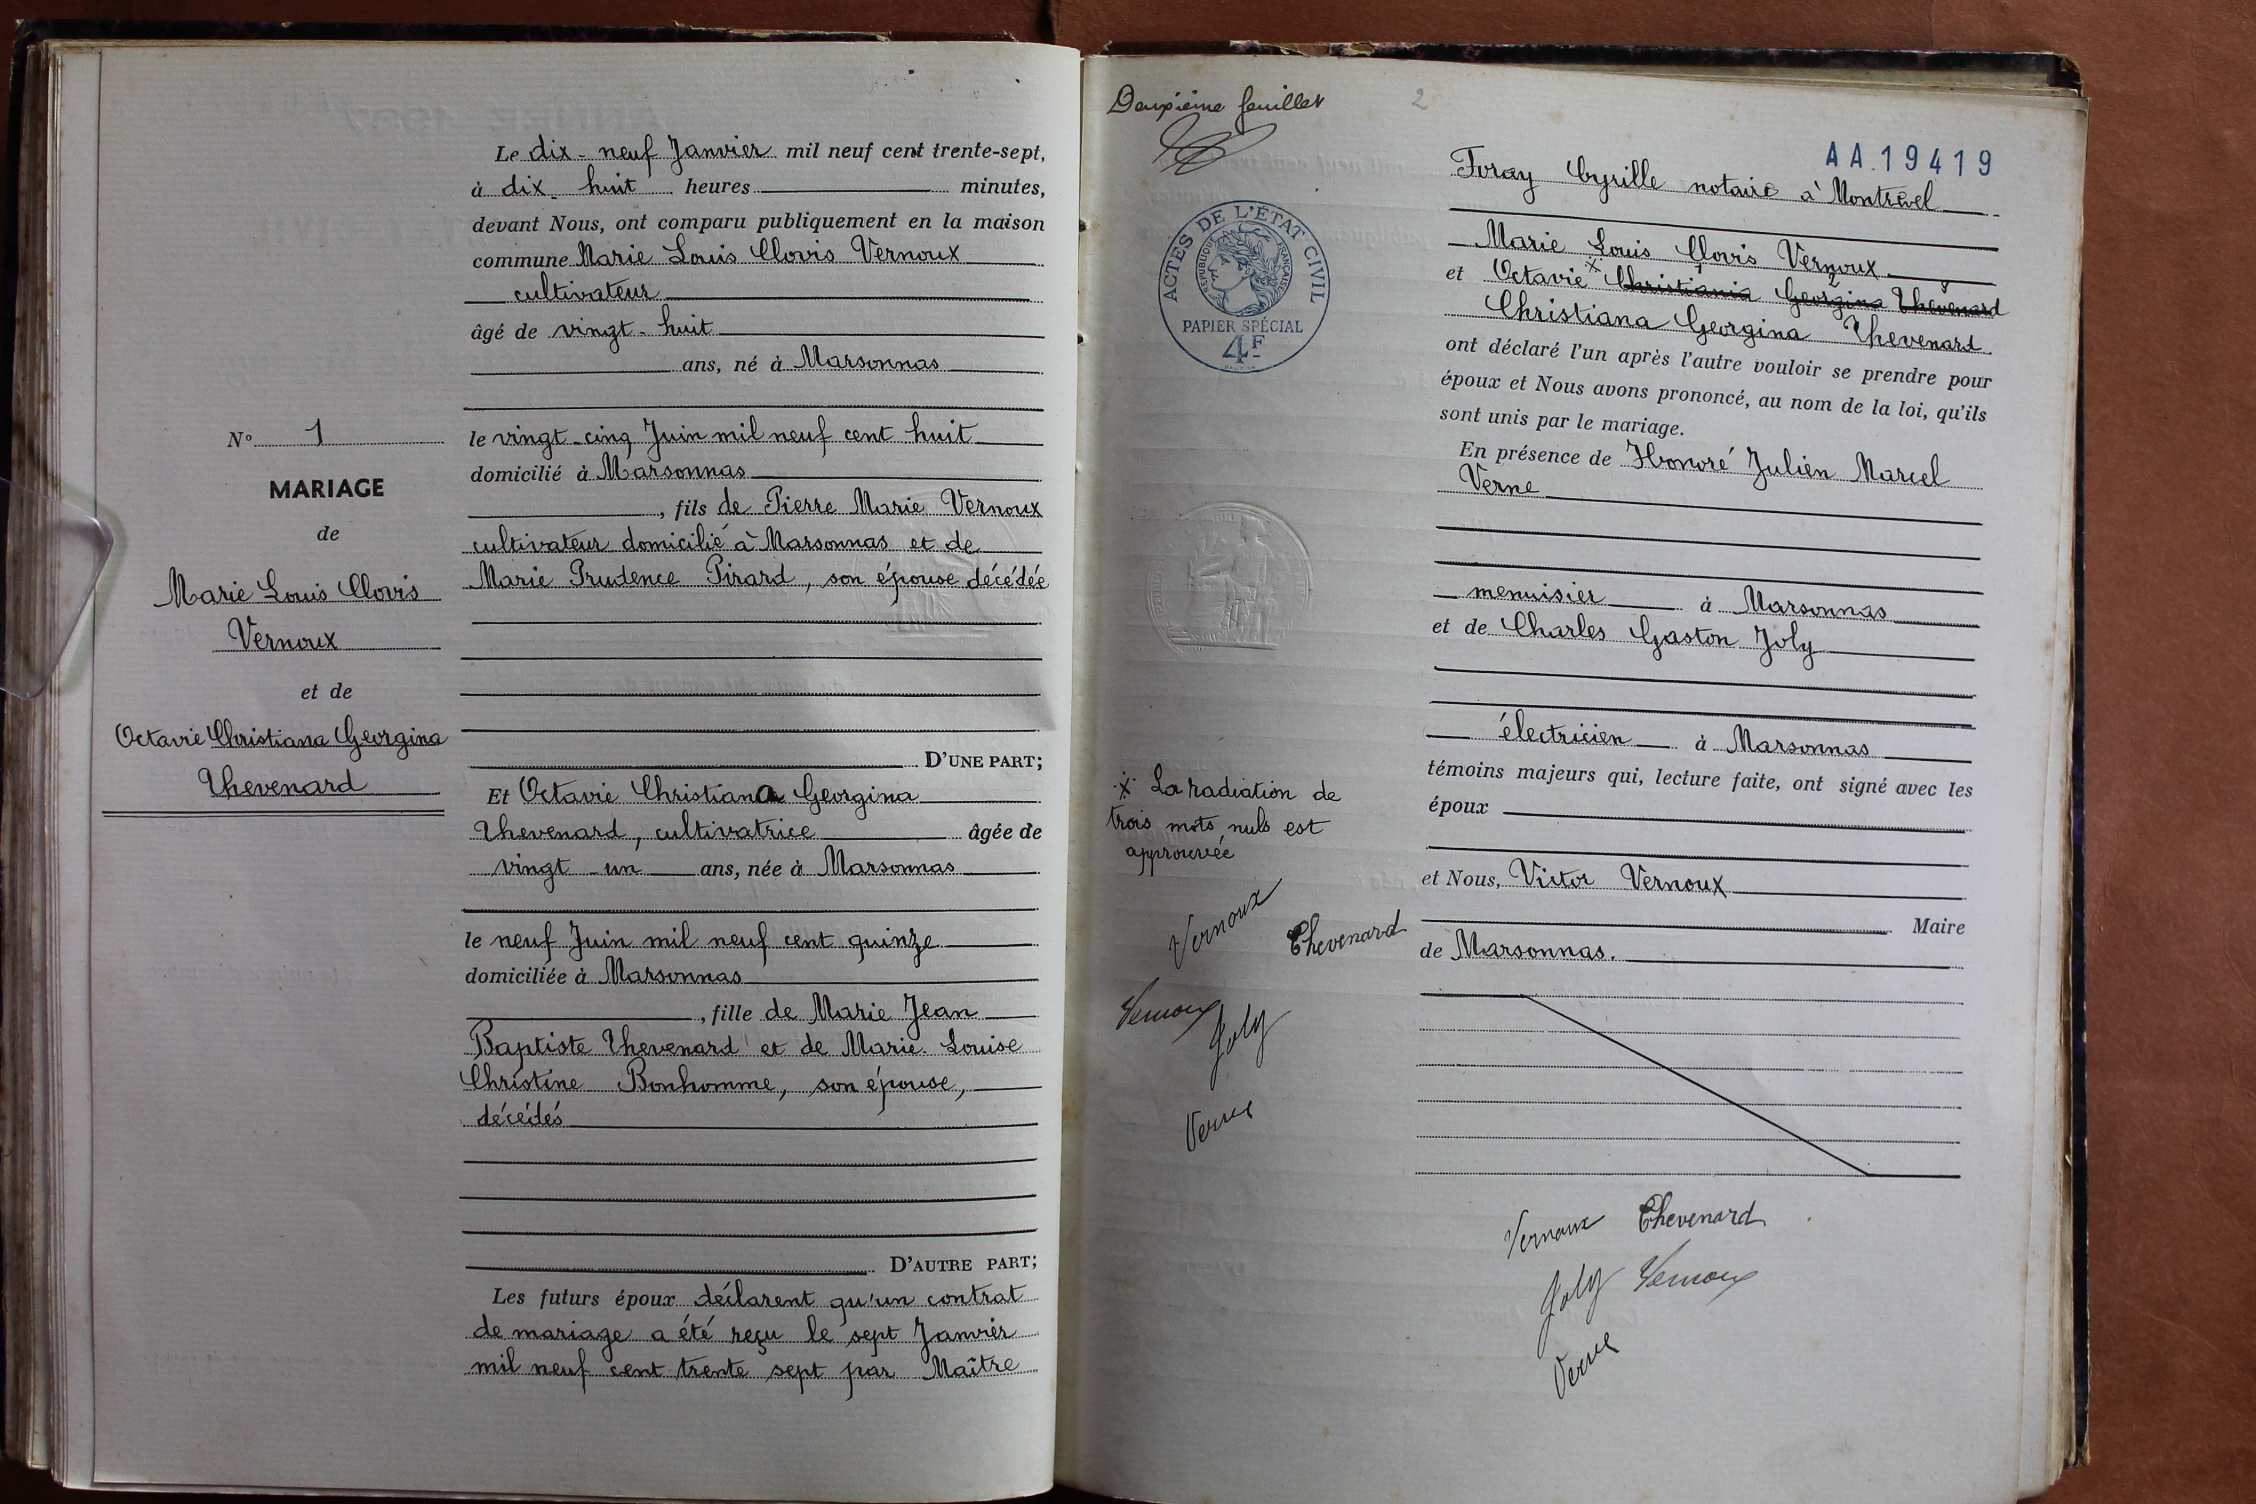 Le dix-neuf Janvier mil neuf cent trente-sept,
à dix-huit heures minutes,
devant Nous, ont comparu publiquement en la maison
commune Marie Louis Clovis Vernoux
cultivateur
âgé de vingt-huit
ans, né à Marsonnas
le vingt-cinq Juin mil neuf cent huit
domicilié à Marsonnas
, fils de Pierre Marie Vernoux
cultivateur domicilié à Marsonnas et de
Marie Prudence Pirard, son épouse décédée
D'UNE PART;
Et Octavie Christiana Georgina
Thevenard, cultivatrice âgée de
vingt-un ans, née à Marsonnas
le neuf Juin mil neuf cent quinze
domiciliée à Marsonnas
, fille de Marie Jean
Baptiste Thevenard et de Marie Louise
Christine Bonhomme, son épouse,
décédés
D'AUTRE PART;
Les futurs époux déclarent qu'un contrat
de mariage a été reçu le sept Janvier
mil neuf cent trente sept par Maître
N° 1
MARIAGE
de
Marie Louis Clovis
Vernoux
et de
Octavie Christiana Georgina
Thevenard
Deuxième feuillet
2
AA.19419
ACTES DE L'ÉTAT CIVIL
RÉPUBLIQUE FRANÇAISE
PAPIER SPÉCIAL
4F
Foray Cyrille notaire à Montrevel
Marie Louis Clovis Vernoux
et Octavie x Christiania Georgina Thevenard
Christiana Georgina Thevenard
ont déclaré l'un après l'autre vouloir se prendre pour
époux et Nous avons prononcé, au nom de la loi, qu'ils
sont unis par le mariage.
En présence de Honoré Julien Marcel
Verne
menuisier à Marsonnas
et de Charles Gaston Joly
électricien à Marsonnas
témoins majeurs qui, lecture faite, ont signé avec les
époux
et Nous, Victor Vernoux
Maire
de Marsonnas.
x La radiation de
trois mots nuls est
approuvée
Vernoux
Thevenard
Vernoux
Joly
Verne
Vernoux Thevenard
Joly Vernoux
Verne